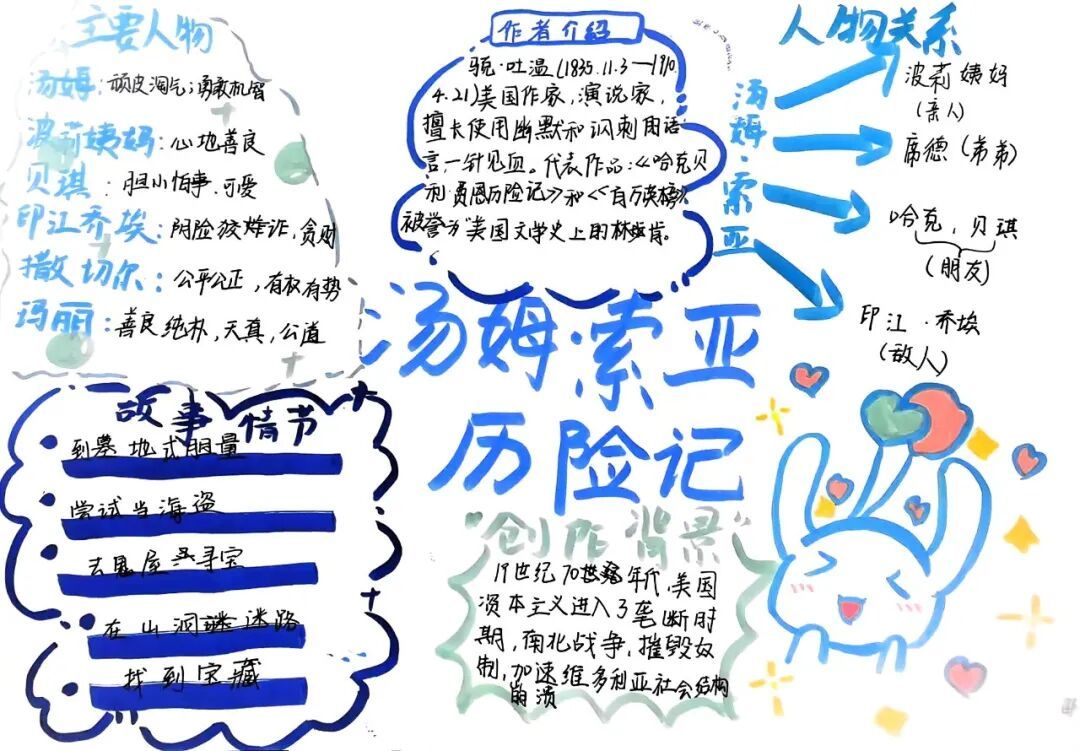 主要人物
汤姆:顽皮淘气;勇敢机智
波莉姨妈:心地善良
贝琪:胆小怕事.可爱
印江乔埃:阴险狡诈,贪财
撒切尔:公平公正,有权有势
玛丽:善良纯朴,天真,公道
作者介绍
·吐温(1835.11.3—1910.
4.21)美国作家,演说家,
擅长使用幽默和讽刺用语
言一针见血。代表作品:《哈克贝
利·费恩历险记》和《百万英镑》
被誉为"美国文学史上的林肯。
人物关系
汤姆·索亚
波莉姨妈
(亲人)
席德(弟弟)
哈克,贝琪
(朋友)
印江·乔埃
(敌人)
汤姆·索亚
历险记
故事情节
到墓地试胆量
尝试当海盗
去鬼屋寻宝
在山洞迷路
找到宝藏
"创作背景"
19世纪70年代,美国
资本主义进入了垄断时
期,南北战争,摧毁奴
制,加速维多利亚社会结构
崩溃